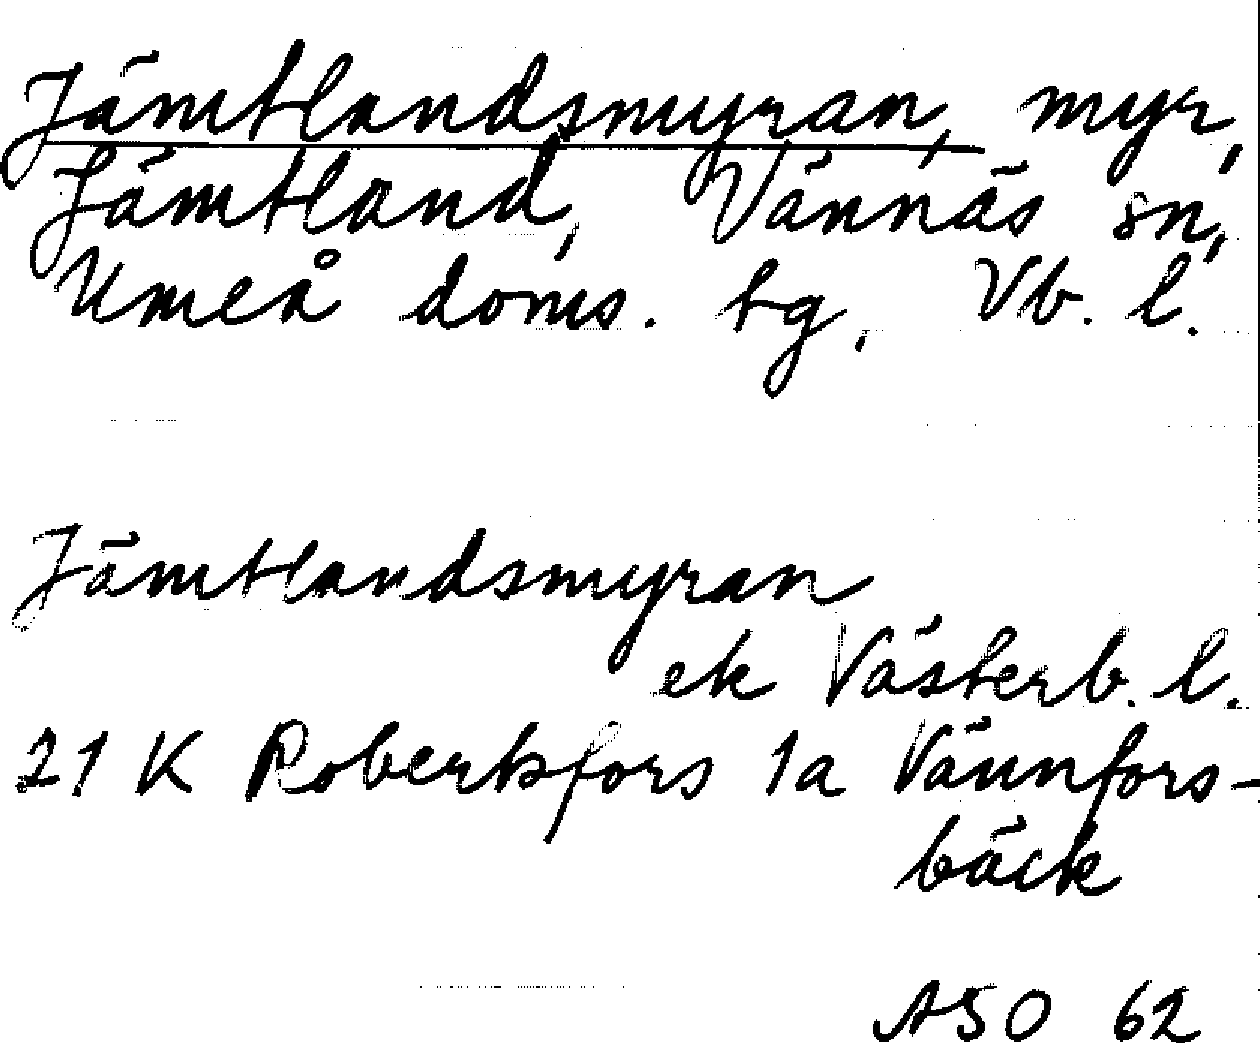 Jämtlandsmyran, myr,
Jämtland, Vännäs sn,
Umeå doms. tg, Vb. l.
Jämtlandsmyran
ek Västerb. l.
21 K Robertsfors 1a Vännfors-
bäck
ASO 62